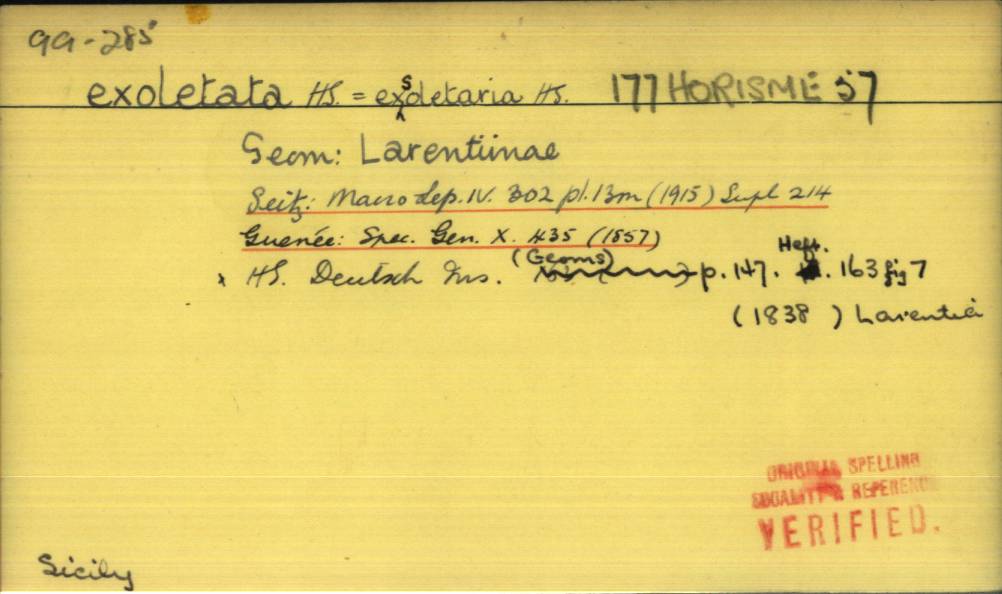 99-285
exoletata HS. = exsoletaria HS. 177 HORISME 57
Geom: Larentiinae
Seitz: Macro Lep. IV. 302 pl. 13m (1915) Supl 214
Guenée: Spec. Gen. X. 435 (1857)
x HS. Deutsch Ins. (Geoms) p. 147. Heft. 163 fig 7
(1838 ) Larentia
ORIGINAL SPELLING
LOCALITY & REFERENCE
VERIFIED.
Sicily